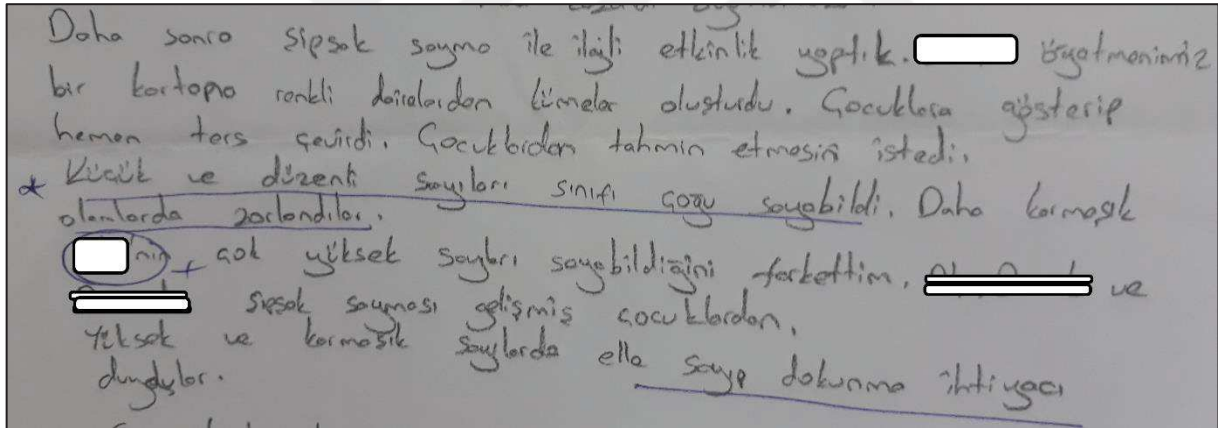 Daha sonra şipşak sayma ile ilgili etkinlik yaptık. öğretmenimiz
bir kartona renkli dairelerden kümeler oluşturdu. Çocuklara gösterip
hemen ters çevirdi. Çocuklardan tahmin etmesini istedi.
* Küçük ve düzenli sayıları sınıfı çoğu sayabildi. Daha karmaşık
olanlarda zorlandılar.
nin + çok yüksek sayıları sayabildiğini farkettim. ve
şipşak sayması gelişmiş çocuklardan.
Yüksek ve karmaşık sayılarda elle sayıp dokunma ihtiyacı
duydular.